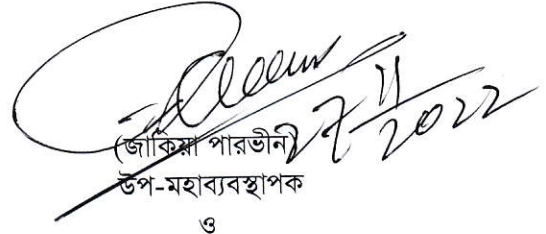 27/11/2022
(জাকিয়া পারভীন)
উপ-মহাব্যবস্থাপক
ও